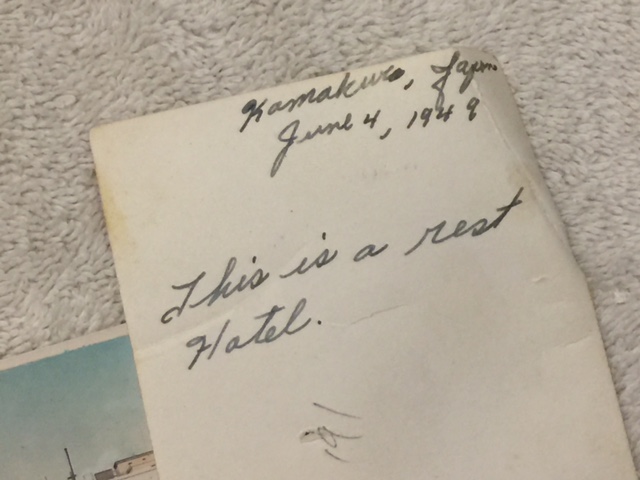 Kamakura, Japan
June 4, 1949
This is a rest
Hotel.